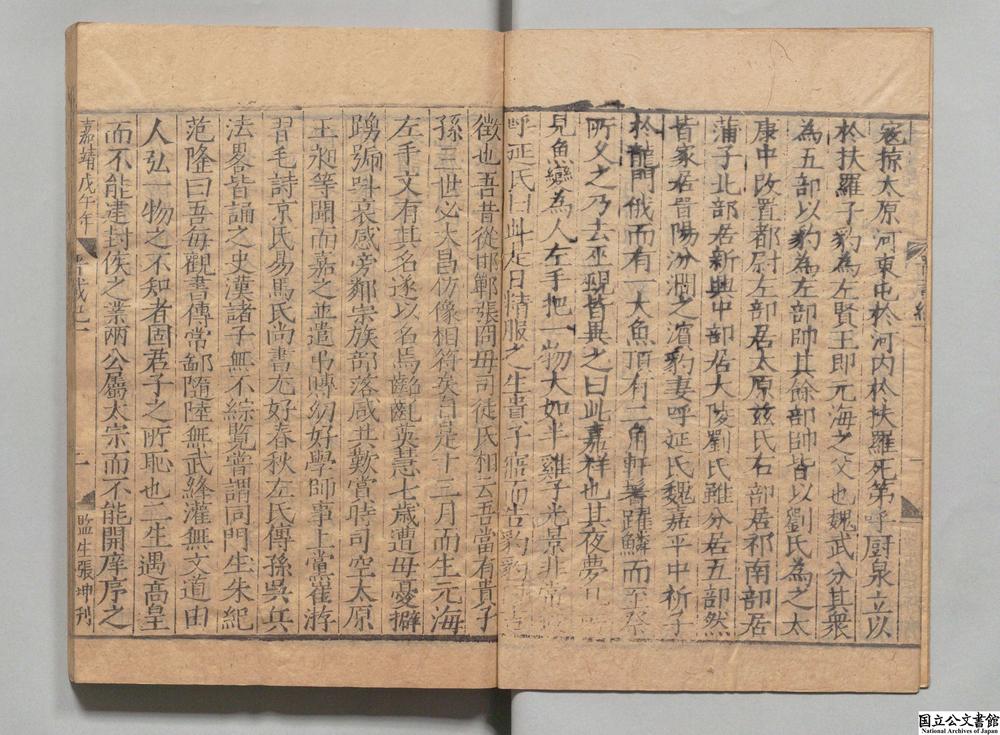 寇掠太原河東屯於河內於扶羅死第呼廚泉立以
於扶羅子豹為左賢王即元海之父也魏武分其衆
為五部以豹為左部帥其餘部帥皆以劉氏為之太
康中改置都尉左部居太原茲氏右部居祁南部居
蒲子北部居新興中部居大陵劉氏雖分居五部然
皆家居晉陽汾澗之濱豹妻呼延氏魏嘉平中祈子
於龍門俄而有一大魚頂有二角軒鬐躍鱗而至祭
所久之乃去巫覡皆異之曰此嘉祥也其夜夢
見魚變為人左手把一物大如半雞子光景非常
呼延氏曰此是日精服之生貴子寤而告豹豹
徵也吾昔從邯鄲張冏母司徒氏相云吾當有貴子
孫三世必大昌仿像相符矣自是十三月而生元海
左手文有其名遂以名焉齠齔英慧七歲遭母憂擗
踴號哀感旁鄰宗族部落咸共歎賞時司空太原
王昶等聞而嘉之並遣弔賻幼好學師事上黨崔游
習毛詩京氏易馬氏尚書尤好春秋左氏傳孫吳兵
法畧皆誦之史漢諸子無不綜覧嘗謂同門生朱紀
范隆曰吾每觀書傳常鄙隨陸無武絳灌無文道由
人弘一物之不知者固君子之所恥也二生遇高皇
而不能建封侯之業兩公屬太宗而不能開庠序之
嘉靖戊午年
晉載記一
二
監生張坤刊
国立公文書館
National Archives of Japan